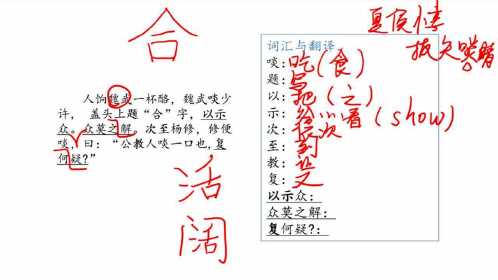 合
夏侯惇
拔矢啖睛
人饷魏武一杯酪，魏武啖少
许，盖头上题“合”字，以示
众。众莫之解。次至杨修，修便
啖，曰：“公教人啖一口也，复
何疑？”
活
阔
词汇与翻译
啖：吃(食)
题：写
以：把(之)
示：给……看(show)
次：依次
至：到
教：让
复：又
以示众：
众莫之解：
复何疑?：